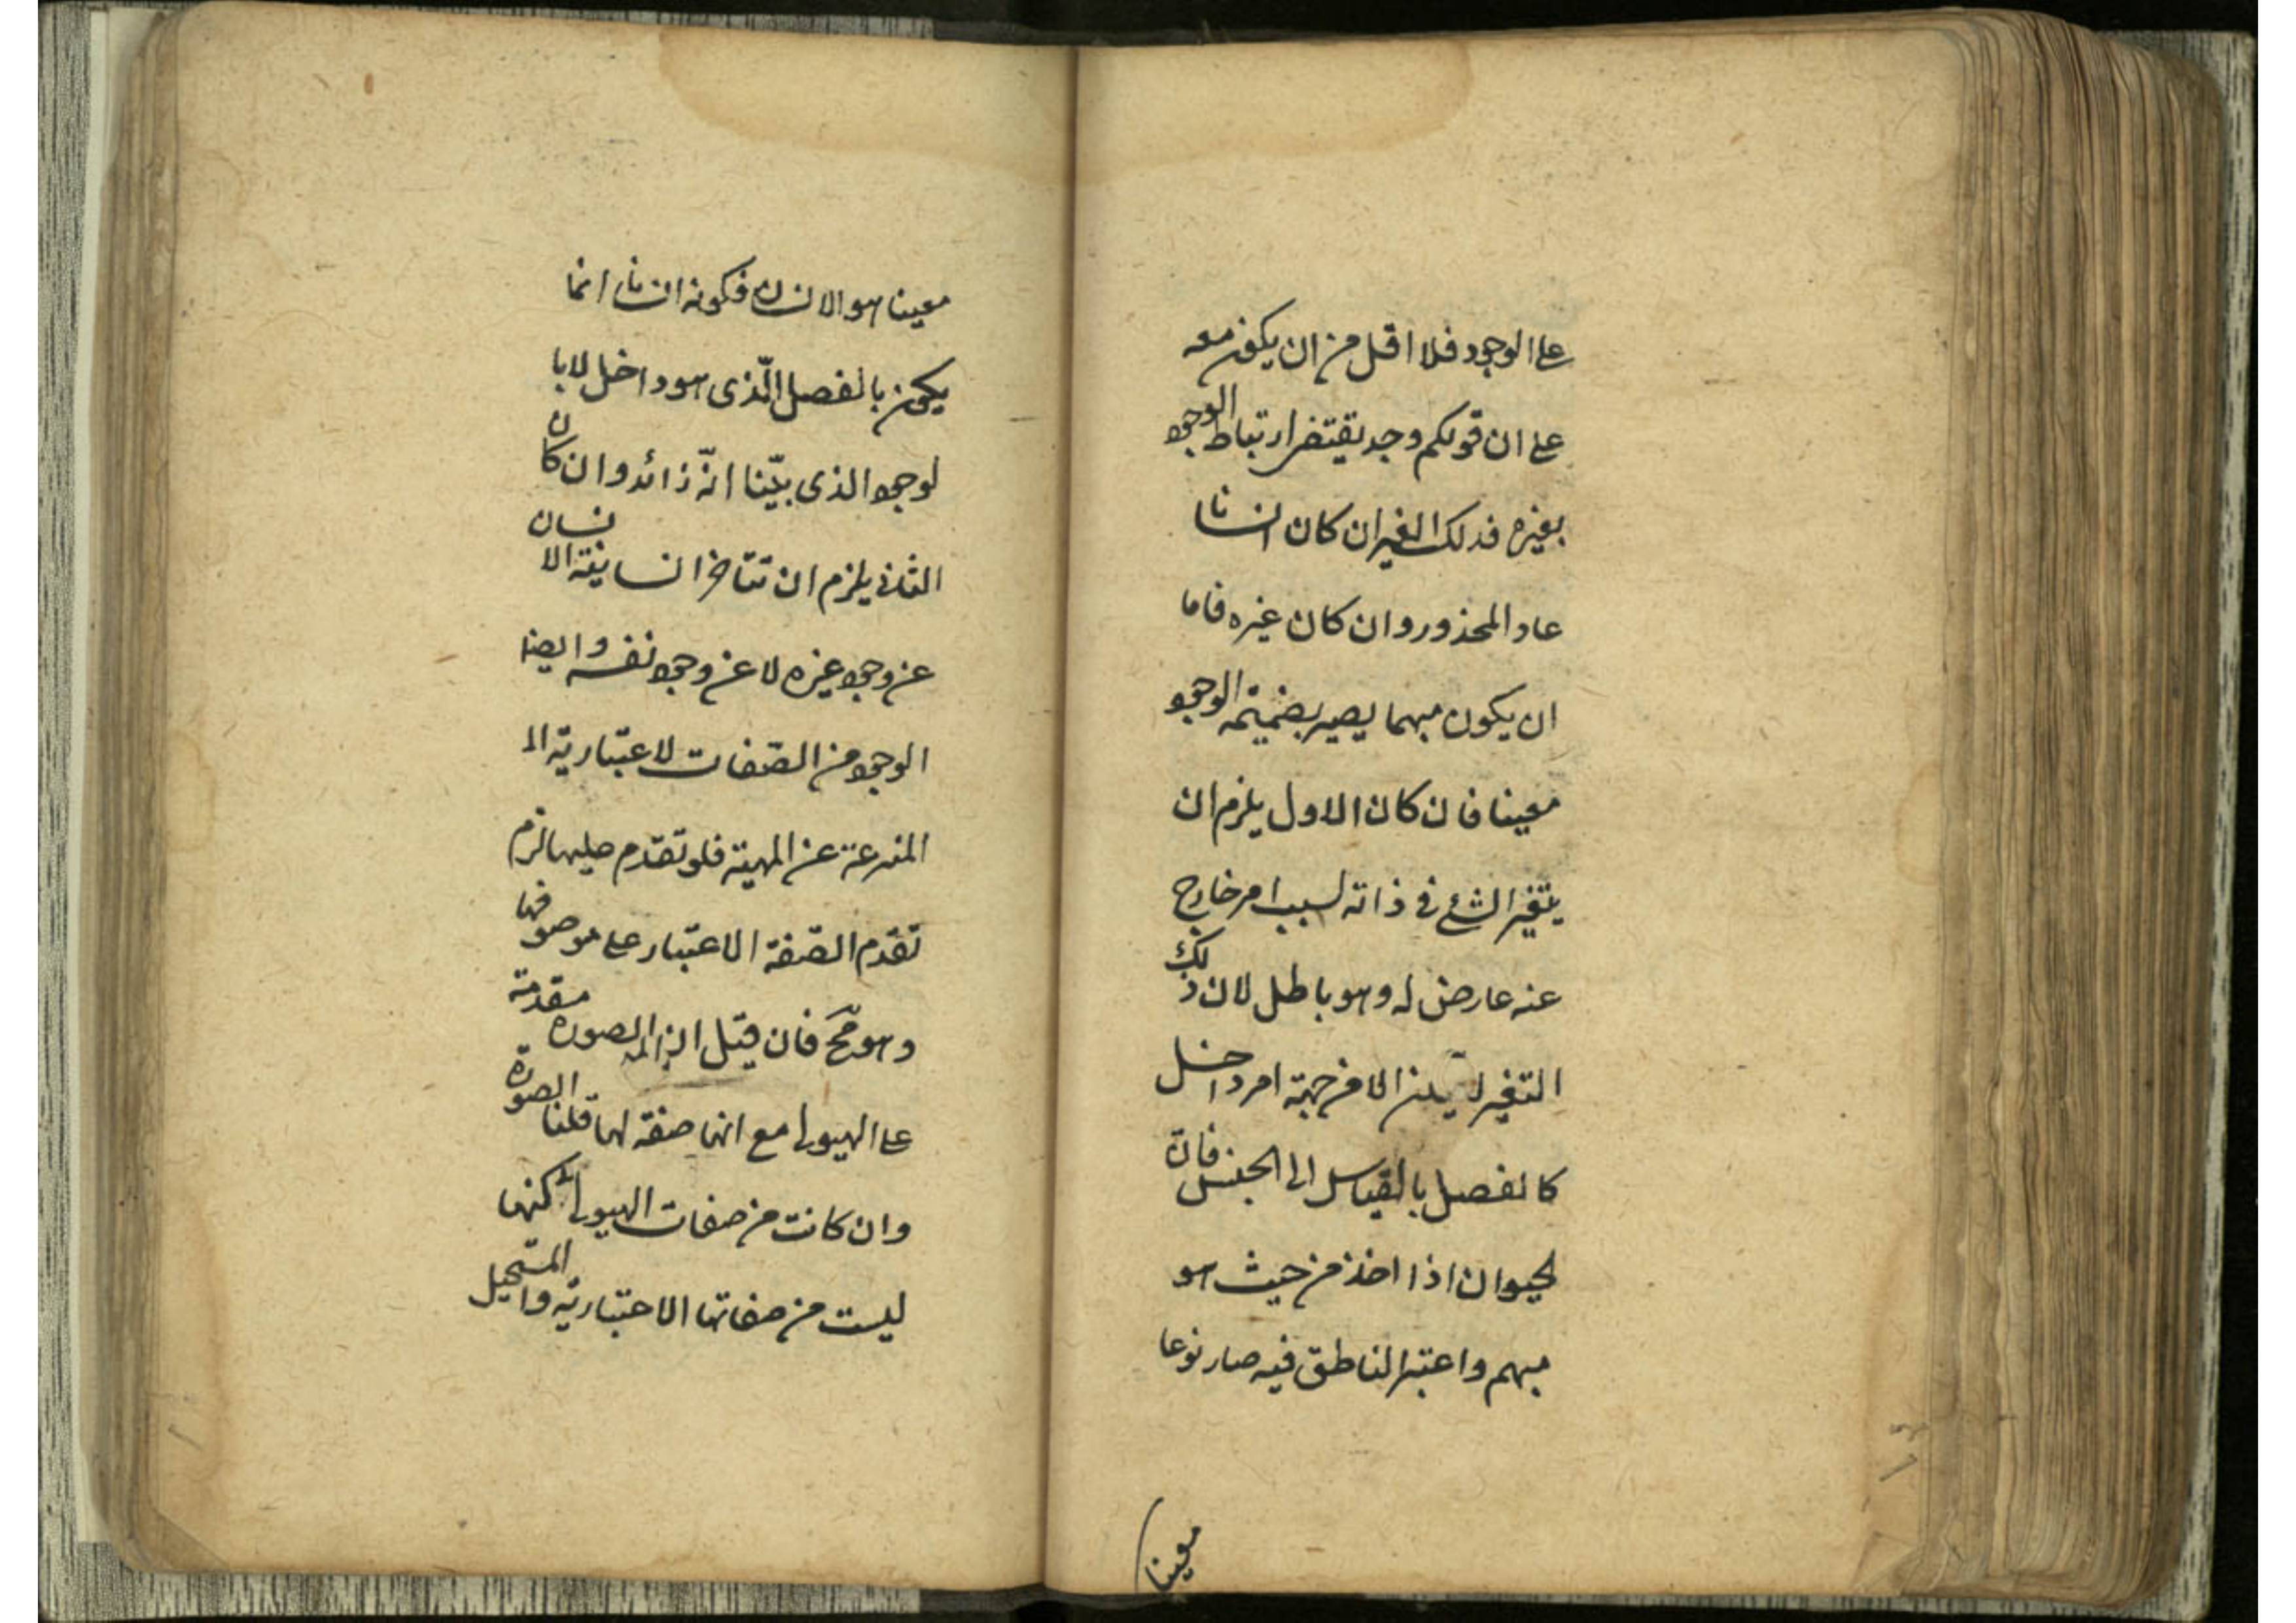 على الوجود فلا اقل من ان يكون معه
على ان قولكم وجد يقتضى ارتباط الوجود
بغيره فذلك الغير ان كان انسانا
عاد المحذور وان كان غيره فاما
ان يكون مبهما يصير بضميمة الوجود
معينا فان كان الاول يلزم ان
يتغير الشئ فى ذاته لسبب امر خارج
عنه عارض له وهو باطل لان ذلك
التغير الا من جهة امر داخل
كالفصل بالقياس الى الجنس فان
لحيوان اذا اخذ من حيث هو
مبهم واعتبر الناطق فيه صار نوعا
معينا
معينا هو الانسان فكونه انسانا انما
يكون بالفصل الّذى هو داخل لا با
لوجود الذى بيّنا انّه زائد وان كان
الثانى يلزم ان تتاخر انسانية الانسان
عن وجود غيره لا عن وجود نفسه وايضا
الوجود من الصّفات لاعتباريّة الـ
المنتزعة عن المهية فلو تقدّم عليها لزم
تقدّم الصّفة الاعتبار على موصوفها
وهو مح فان قيل ان الصورة مقدمة
على الهيولى مع انها صفة لها قلنا الصورة
وان كانت من صفات الهيولى لكنها
ليست من صفاتها الاعتباريّة والمستحيل